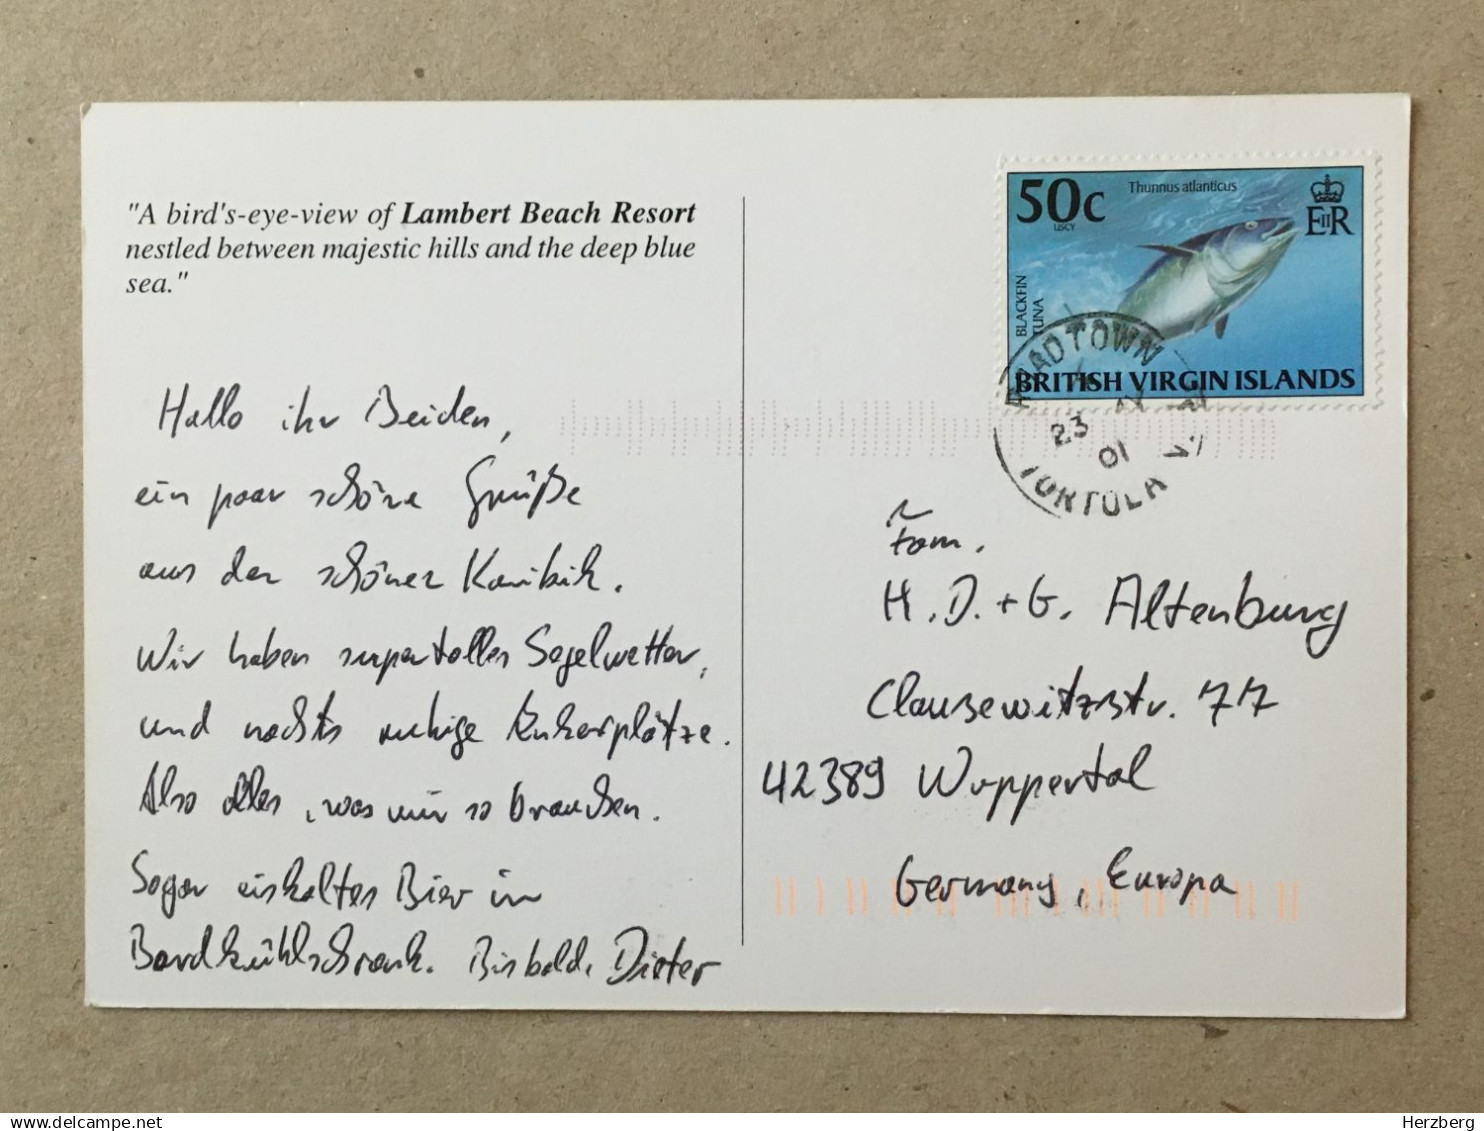 "A bird's-eye-view of Lambert Beach Resort
nestled between majestic hills and the deep blue
sea."
Hallo ihr Beiden,
ein paar schöne Grüße
aus der schönen Karibik.
Wir haben supertolles Segelwetter,
und nachts ruhige Ankerplätze.
Also alles, was wir so brauchen.
Sogar eiskaltes Bier im
Bordkühlschrank. Bis bald, Dieter
50c
Thunnus atlanticus
EIIR
USCY
BLACKFIN
TUNA
BRITISH VIRGIN ISLANDS
ROADTOWN
23
01
TORTOLA
Fam.
H. D. + G. Altenburg
Clausewitzstr. 77
42389 Wuppertal
Germany, Europa
Herzberg